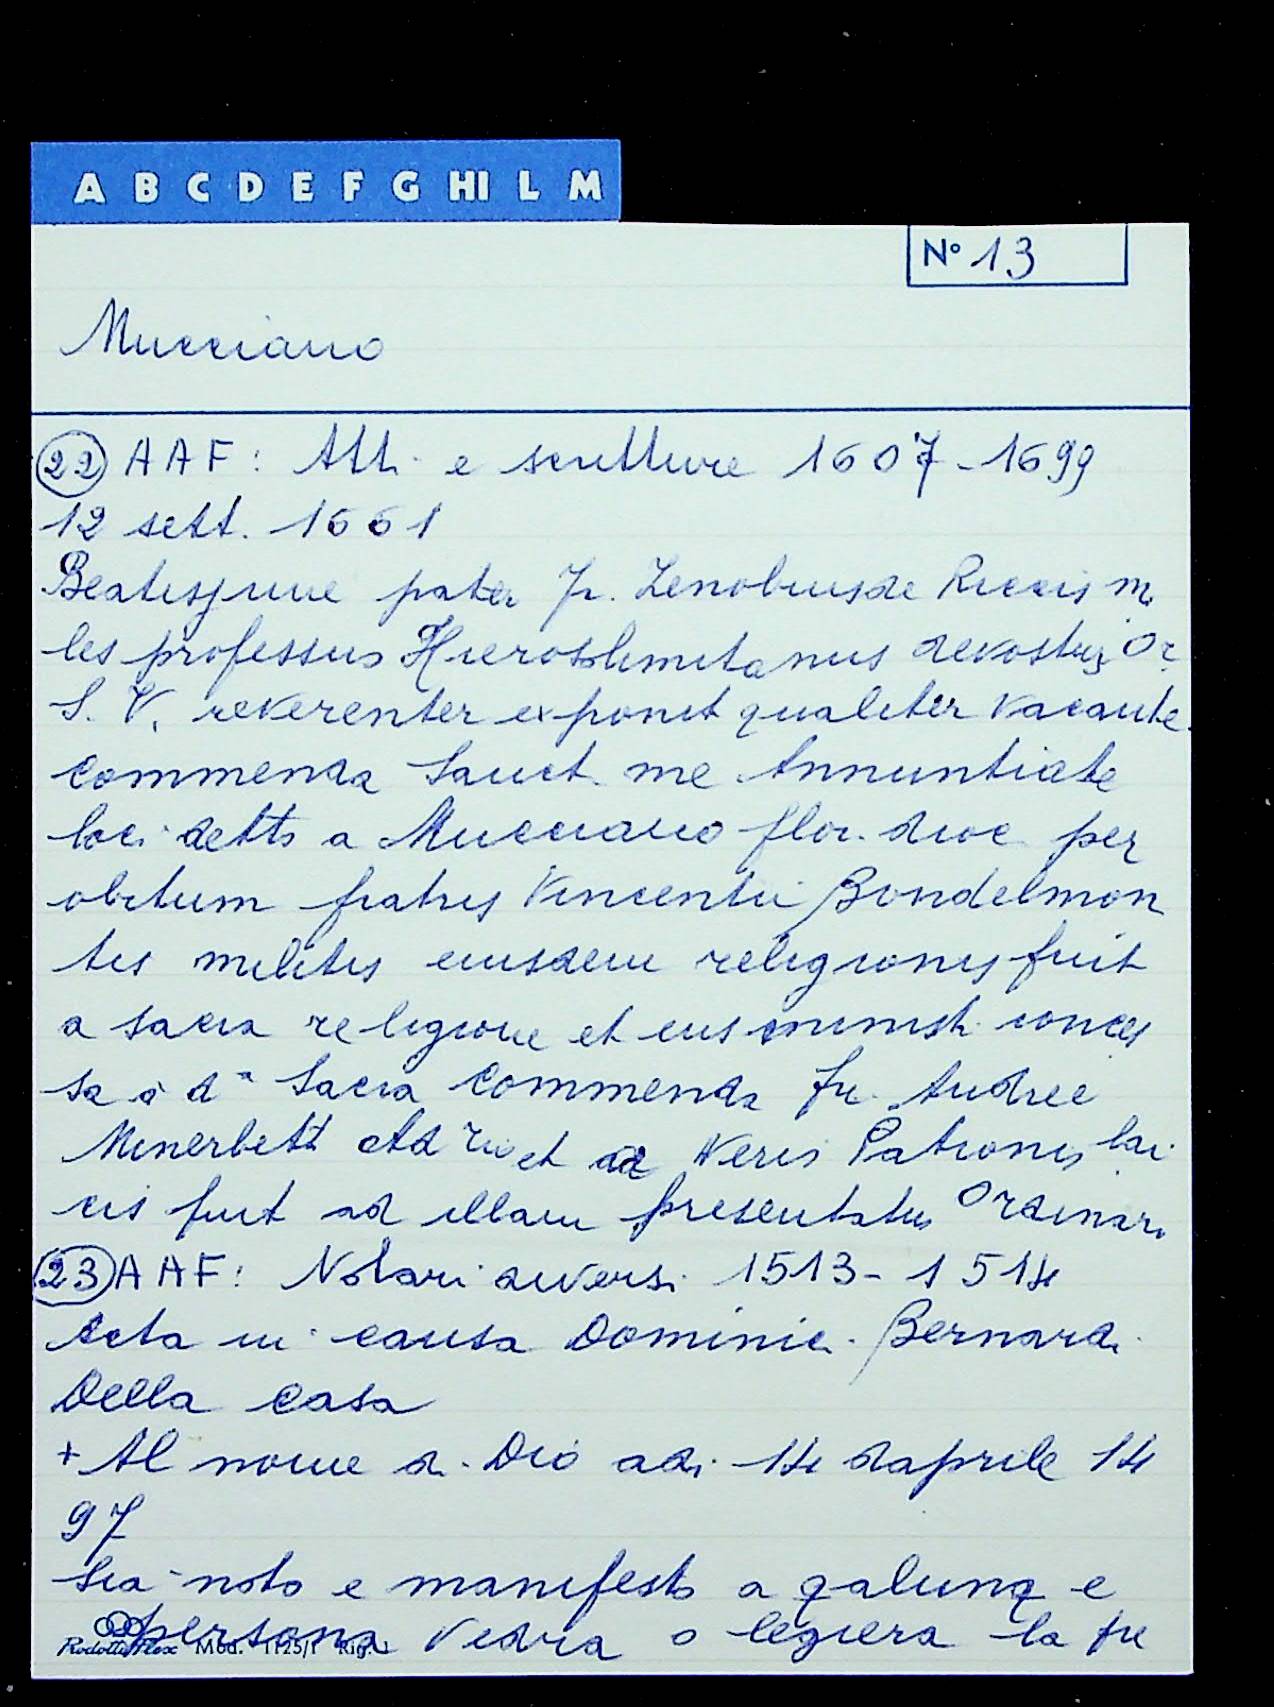 A B C D E F G HI L M
N° 13
Mucciano
22 AAF: Atti e scritture 1607-1699
12 sett. 1661
Beatissime pater fr. Zenobius de Riccis mi
les professus Hierosolimitanus Or.
S. V. reverenter exponit qualiter vacante
commenda Sanct. me Annuntiate
loci detto a Mucciano flor. dioc per
obitum fratris Vincentii Bondelmon
tis militis eiusdem religionis fuit
a sacra religione et eius ministri conces
sa a dª sacra commenda fr. Andree
Minerbetti et ad Neris Patronis lai
cis fuit ad illam presentatus Ordinari
23 AAF: Notari diversi 1513-1514
Acta in causa Dominici Bernardi
Della Casa
+ Al nome di Dio adi 14 daprile 14
97
Sia noto e manifesto a qalunq e
persona vedra o legiera la pre
RodottaFlex Mod. 1125/1 Rig. 1